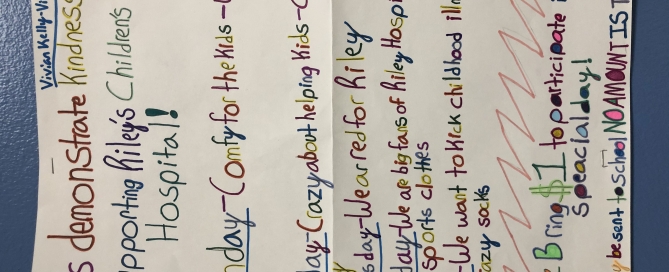 Vivian Kelly-Vi
s demonstrate Kindness
pporting Riley's Children's
Hospital!
nday-Comfy for the Kids-
day-Crazy about helping Kids-C
sday-We are red for Riley
day-We are big fans of Riley Hospi
sports clothes
-We want to Kick childhood illn
azy socks
Bring $1 to participate i
Speacial day!
y be sent to School NO AMOUNT IS T